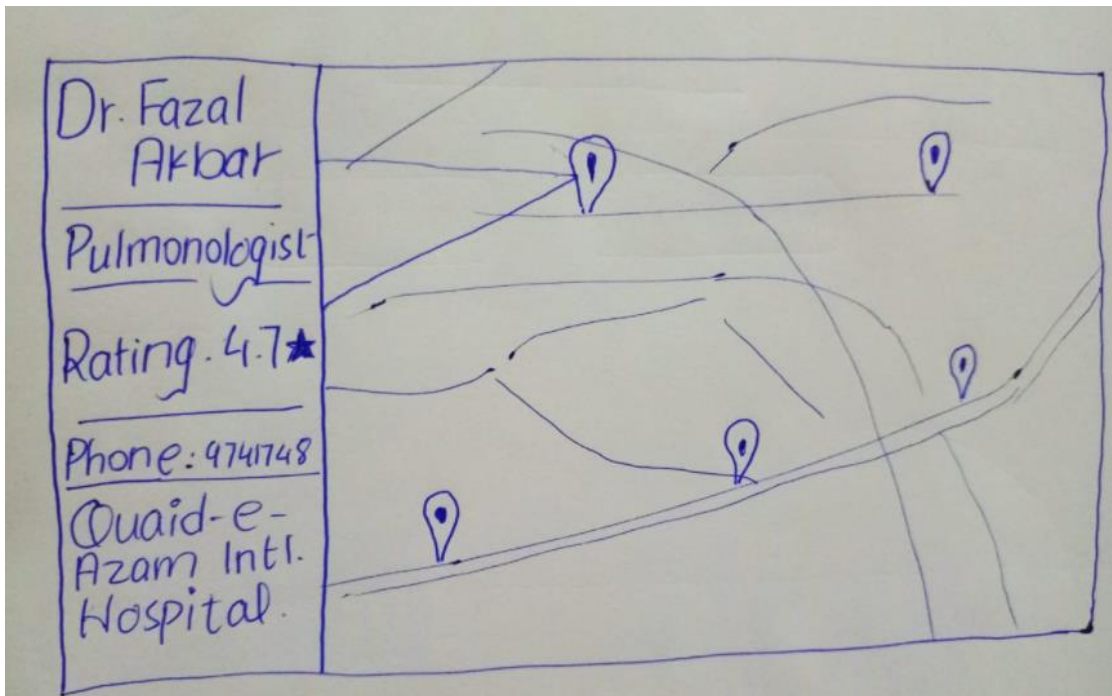 Dr. Fazal
Akbar
Pulmonologist
Rating. 4.7★
Phone: 9741748
Quaid-e-
Azam Intl.
Hospital.